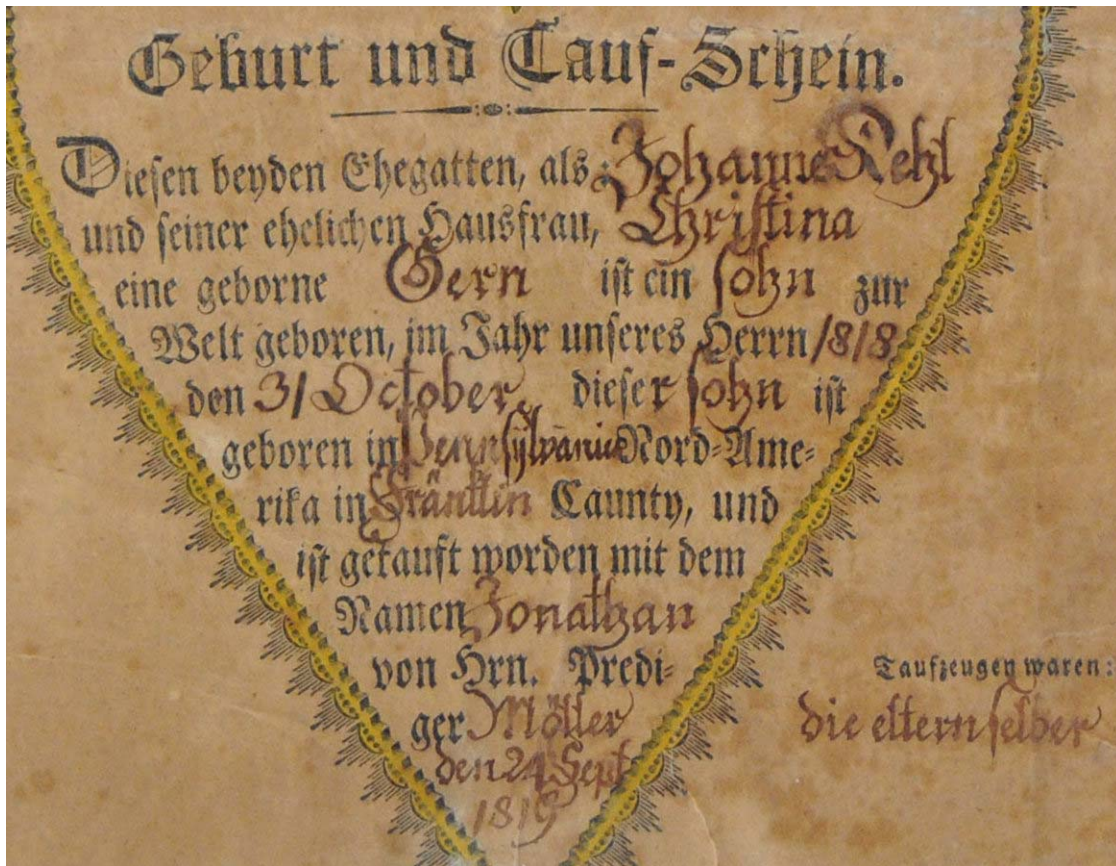 Geburt und Tauf-Schein.
Diesen beyden Ehegatten, als: Johannes Kehl
und seiner ehelichen Hausfrau, Christina
eine geborne Gern ist ein sohn zur
Welt geboren, im Jahr unseres Herrn 1818
den 31 October dieser sohn ist
geboren in Pennsylvanie Nord-Ame-
rika in Fränklin Caunty, und
ist getauft worden mit dem
Namen Jonathan
von Hrn. Predi-
ger Möller
den 24 Sept
1819
Taufzeugen waren:
die eltern selber